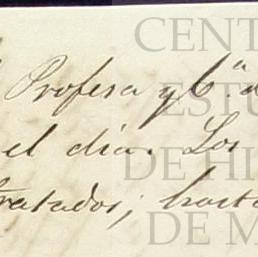 Profesa y 6.ª d
el día. Los
tratados; hasta
CENT
ESTU
DE HI
DE M